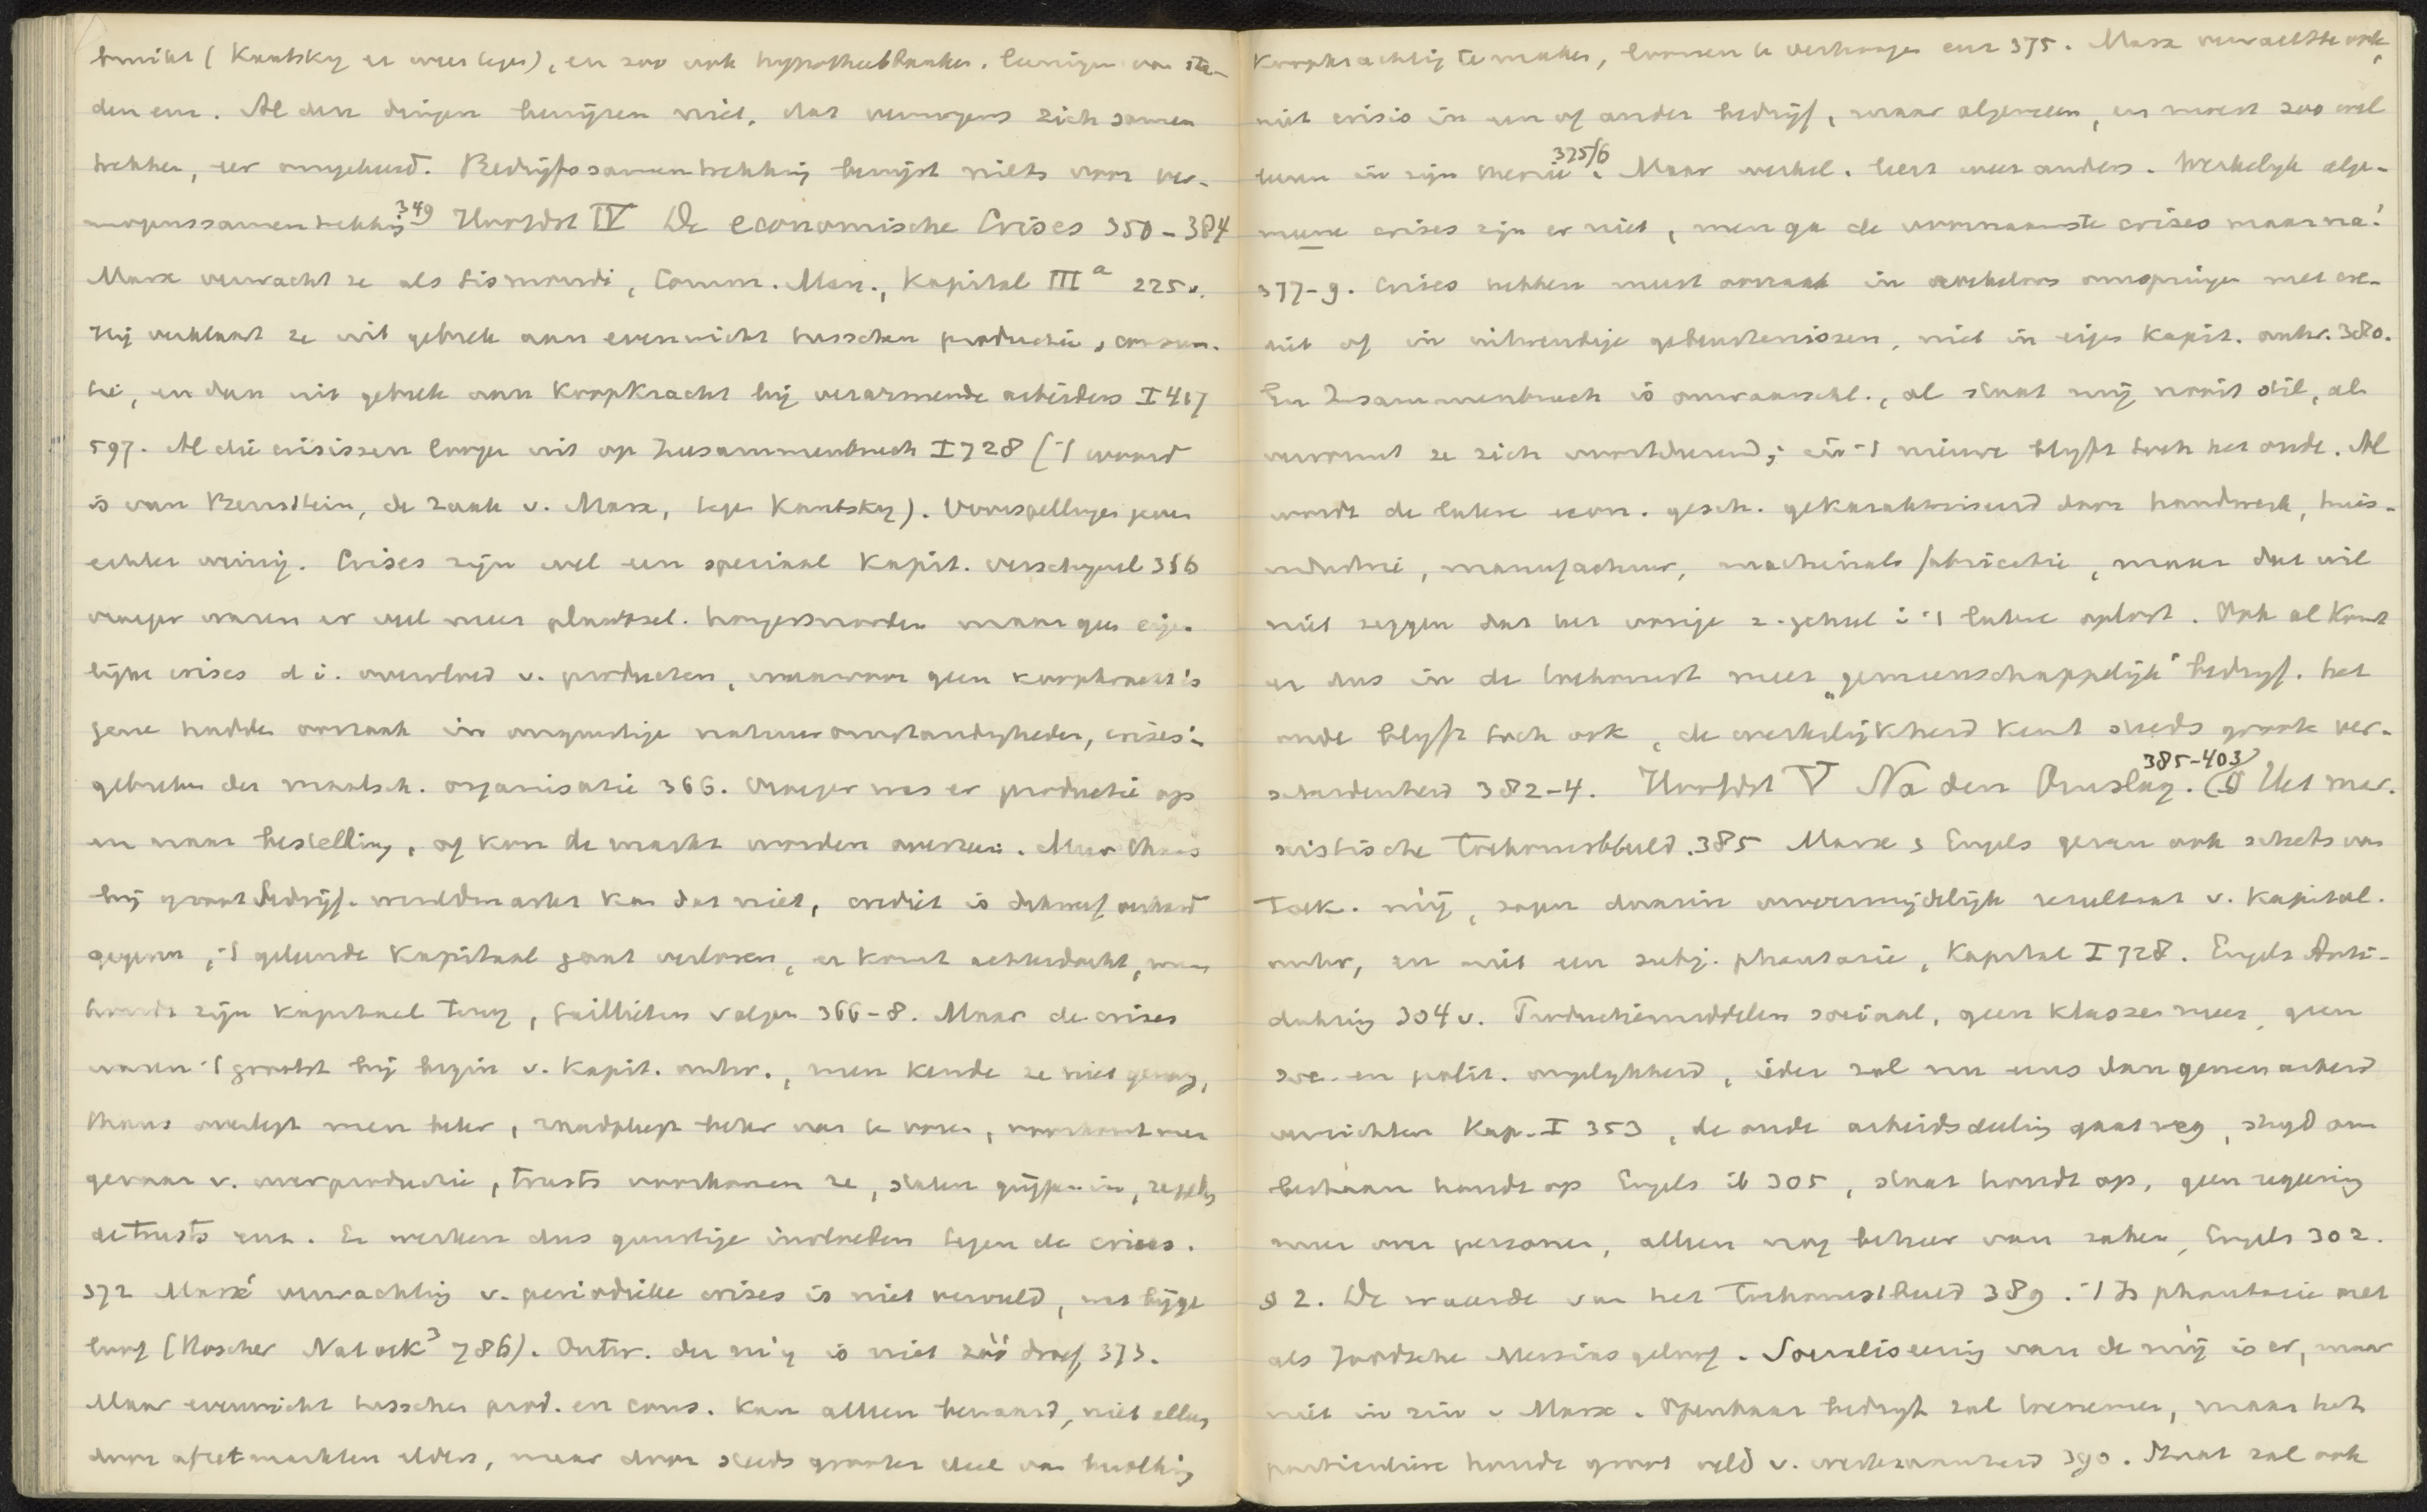 bruikt (Kautsky er weer tegen), en zoo ook hypotheekbanken. leeningen van ste-
den enz. Al deze dingen bewijzen niet, dat vermogens zich samen
trekken, eer omgekeerd. Bedrijfssamentrekking bewijst niets voor ver-
mogenssamentrekking 349 Hoofdst IV De economische Crises 350-384
Marx verwacht ze als Sismondi, Comm. Man., Kapital III a 225 v.
Hij verklaart ze uit gebrek aan evenwicht tusschen productie, consum-
tie, en dan uit gebrek aan koopkracht bij verarmende arbeiders I 417
597. Al die crisissen loopen uit op Zusammenbruch I 728 ('t woord
is van Bernstein, de zaak v. Marx, tegen Kautsky). Voorspellingen geven
echter weinig. Crises zijn wel een speciaal kapit. verschijnsel 356
vroeger waren er veel meer plaatsel. hongersnooden maar geen eigen-
lijke crises d i. overvloed v. producten, waarvoor geen koopkracht is
gene hadden oorzaak in ongunstige natuuromstandigheden, crises in
gebreken der maatsch. organisatie 366. Vroeger was er productie op
en naar bestelling, of kon de markt worden overzien. Maar thans
bij groot bedrijf. wereldmarkt kan dat niet, crediet is
gegeven, 't geleende kapitaal gaat verloren, er komt achterdocht, men
houdt zijn kapitaal terug, faillieten volgen 366-8. Maar de crises
waren 't grootst bij begin v. kapit. ontw., men kende ze niet genoeg,
thans overlegt men beter, raadpleegt beter van te voren, voorkomt men
gevaar v. overproductie, trusts voorkomen ze, staten grijpen in, regelen
de trusts enz. Er werken dus gunstige invloeden tegen de crises.
372 Marx' verwachting v. periodieke crises is niet vervuld, was bijge
loof (Roscher Nat oek³ 786). Ontw. der m'ij is niet zóó droef 373.
Maar evenwicht tusschen prod. en cons. kan alleen bewaard, niet alleen
door afzetmarkten elders, maar door steeds grooter deel van bevolking
koopkrachtig te maken, loonen te verhoogen enz 375. Marx verwachtte ook,
niet crisis in een of ander bedrijf, maar algemeen, en moest zoo wel
leeren in zijn theorie 375/6. Maar werkel. leert weer anders. Werkelijk alge-
meene crises zijn er niet, men ga de voornaamste crises maar na!
377-9. Crises hebben meest oorzaak in roekeloos omspringen met cre-
diet of in uitwendige gebeurtenissen, niet in eigen kapit. ontw. 380.
En Zusammenbruch is onwaarschl., al staat mij nooit stil, al
vervormt ze zich voortdurend; in 't nieuwe blijft toch het oude. Al
wordt de latere econ. gesch. gekarakteriseerd door handwerk, huis-
industrie, manufactuur, machinale fabricatie, maar dat wil
niet zeggen dat het vorige z. geheel i 't latere oplost. Ook al komt
er dus in de toekomst meer „gemeenschappelijk" bedrijf. het
oude blijft toch ook, de werkelijkheid kent steeds groote ver-
scheidenheid 382-4. Hoofdst V Na den Omslag. 385-403 (§ Het mar-
xistische Toekomstbeeld. 385 Marx & Engels geven ook schets van
Toek. m'ij, zagen daarin onvermijdelijk resultaat v. kapital.
ontw, en niet een subj. phantasie, Kapital I 728. Engels Anti-
duhring 304 v. Productiemiddelen sociaal, geen klassen meer, geen
soc. en polit. ongelijkheid, ieder zal nu eens dan geenen arbeid
verrichten Kap. I 353, de oude arbeidsdeeling gaat weg, strijd om
bestaan houdt op Engels ib 305, staat houdt op, geen regeering
meer over personen, alleen nog beheer van zaken, Engels 302.
§ 2. De waarde van het Toekomstbeeld 389. 't Is phantasie net
als Joodsche Messiasgeloof. Socialiseering van de m'ij is er, maar
niet in zin v Marx. Openbaar bedrijf zal toenemen, maar het
particuliere houdt groot veld v. werkzaamheid 390. Staat zal ook